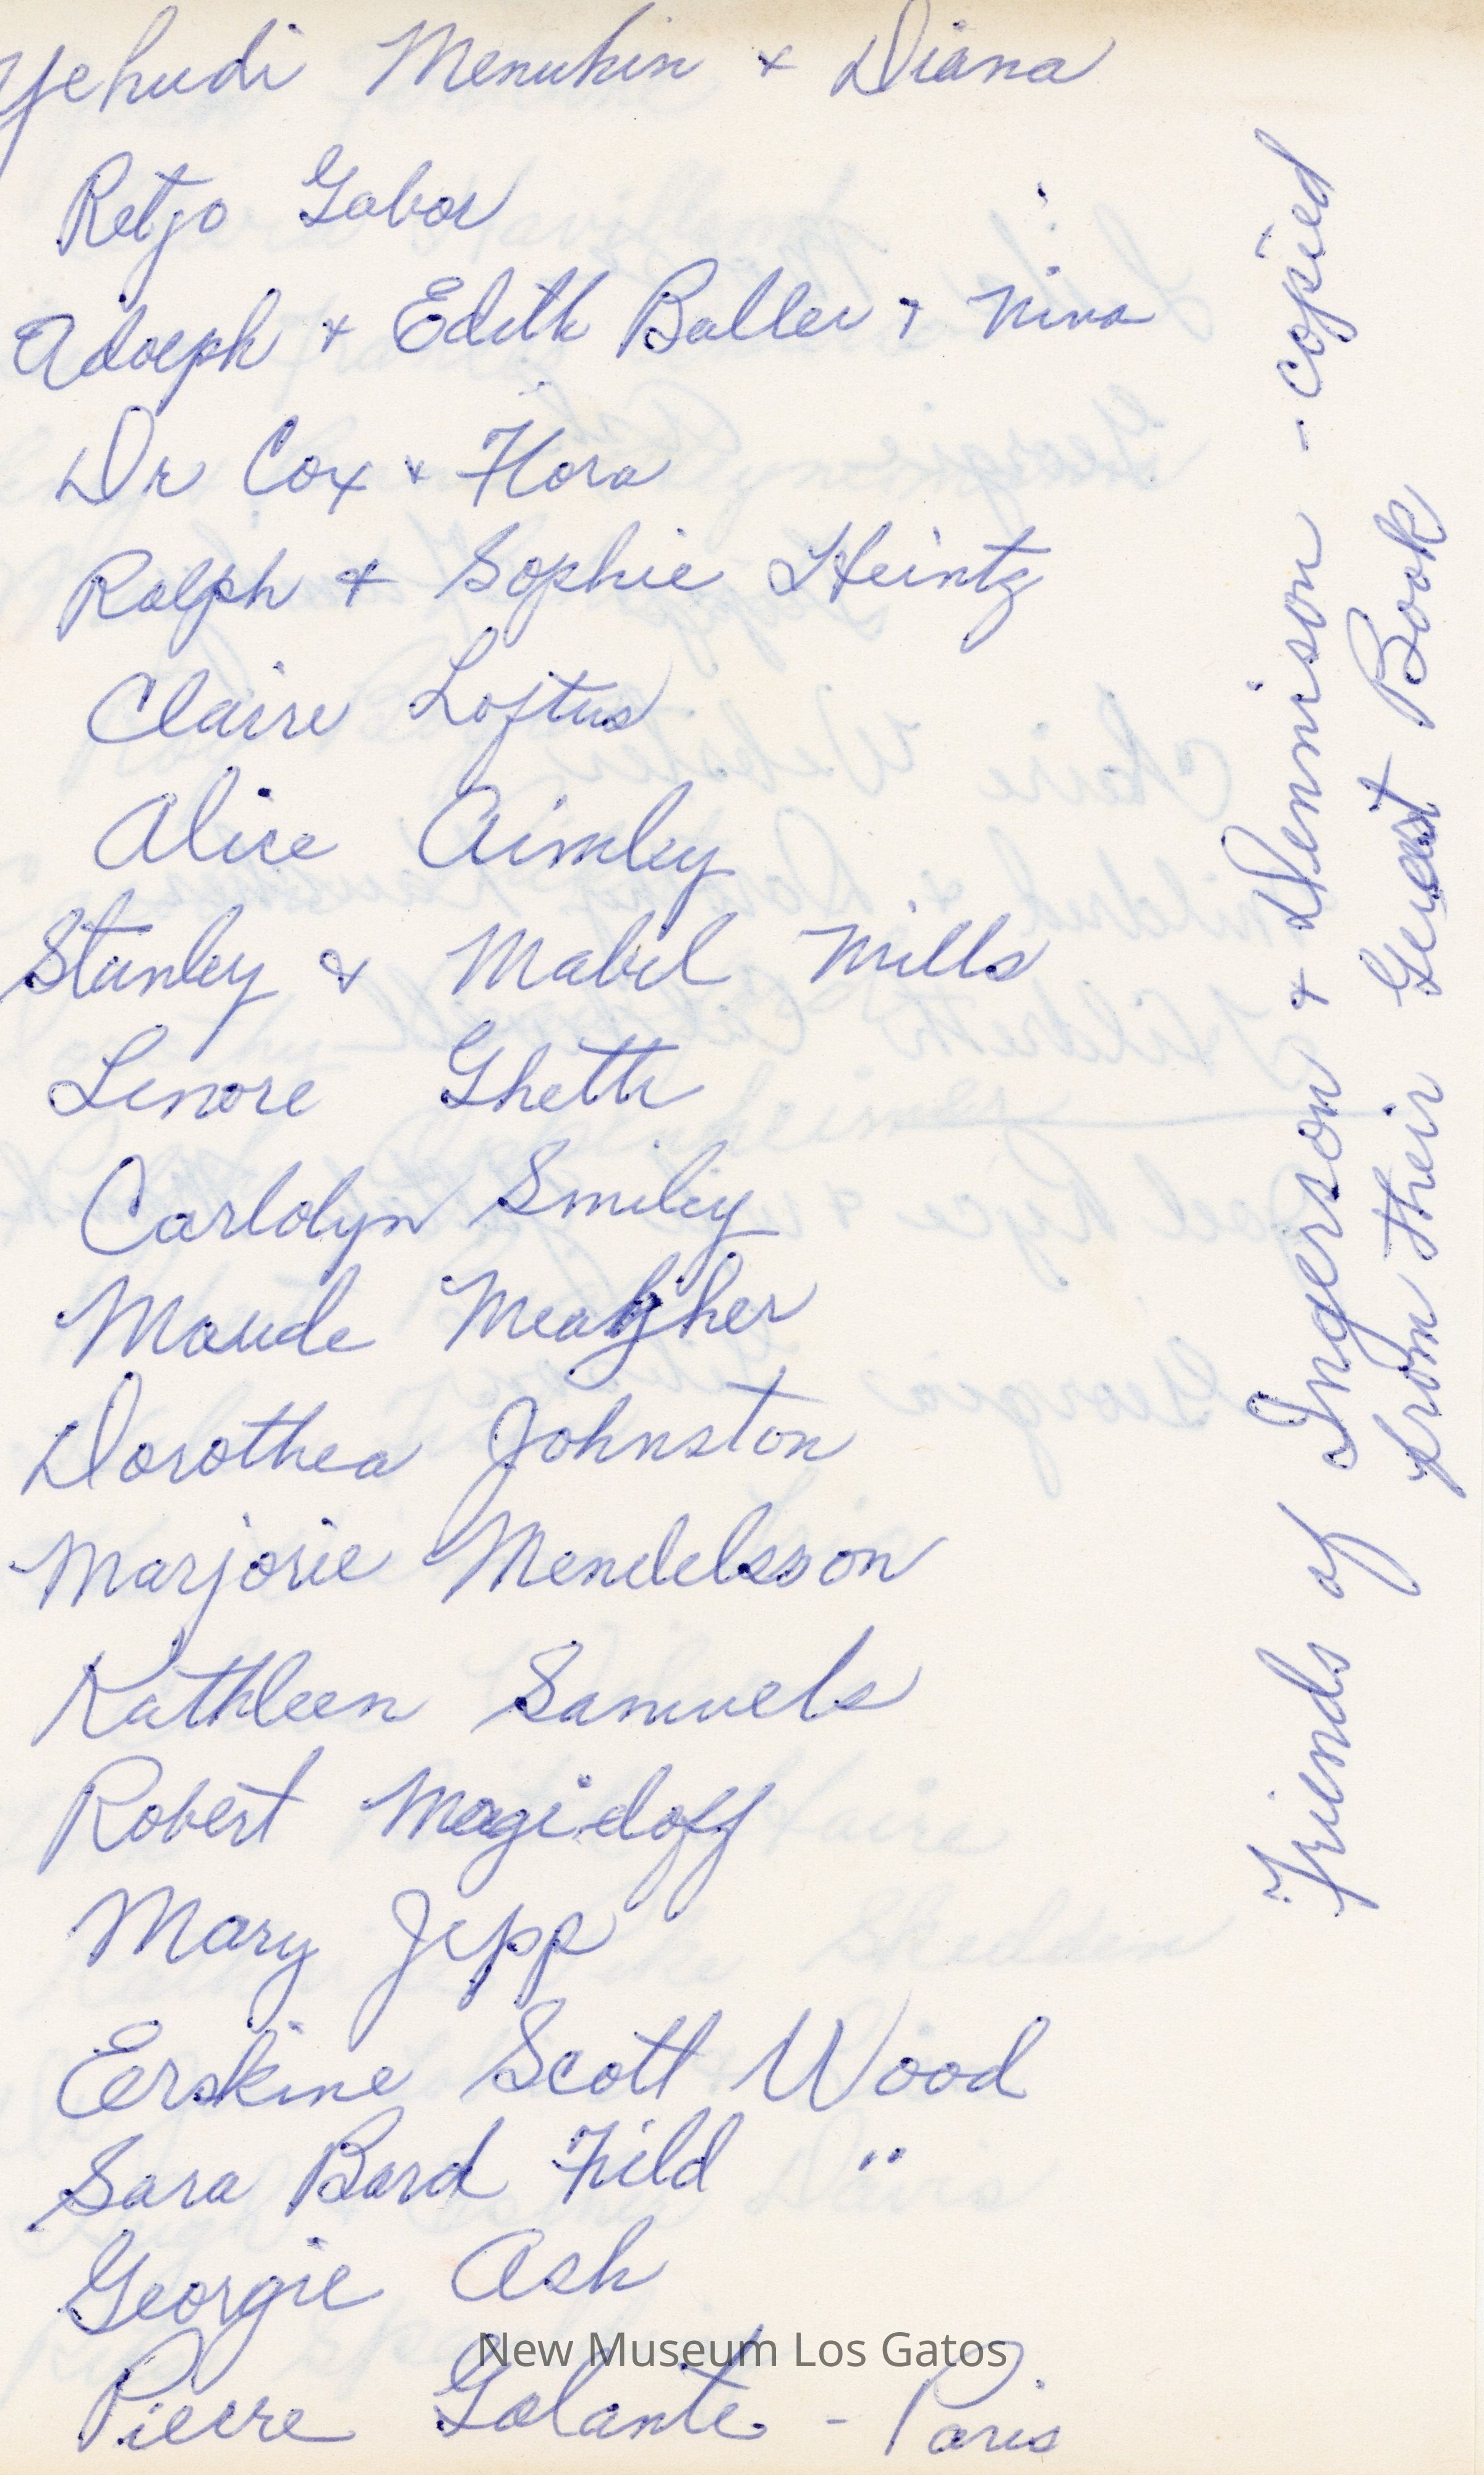 Yehudi Menuhin + Diana
Retjo Gabor
Adolph + Edith Baller + Nina
Dr Cox + Flora
Ralph + Sophie Heintz
Claire Loftus
Alice Aimley
Stanley & Mabel Mills
Lenore Ghetti
Carlolyn Smiley
Maude Meagher
Dorothea Johnston
Marjorie Mendelsson
Kathleen Samuels
Robert Magidoff
Mary Jepp
Eerskine Scott Wood
Sara Bard Field "
Georgie Ash
Pierre Galante - Paris
Friends of Ingerson + Dennison - copied
from their Guest Book
New Museum Los Gatos